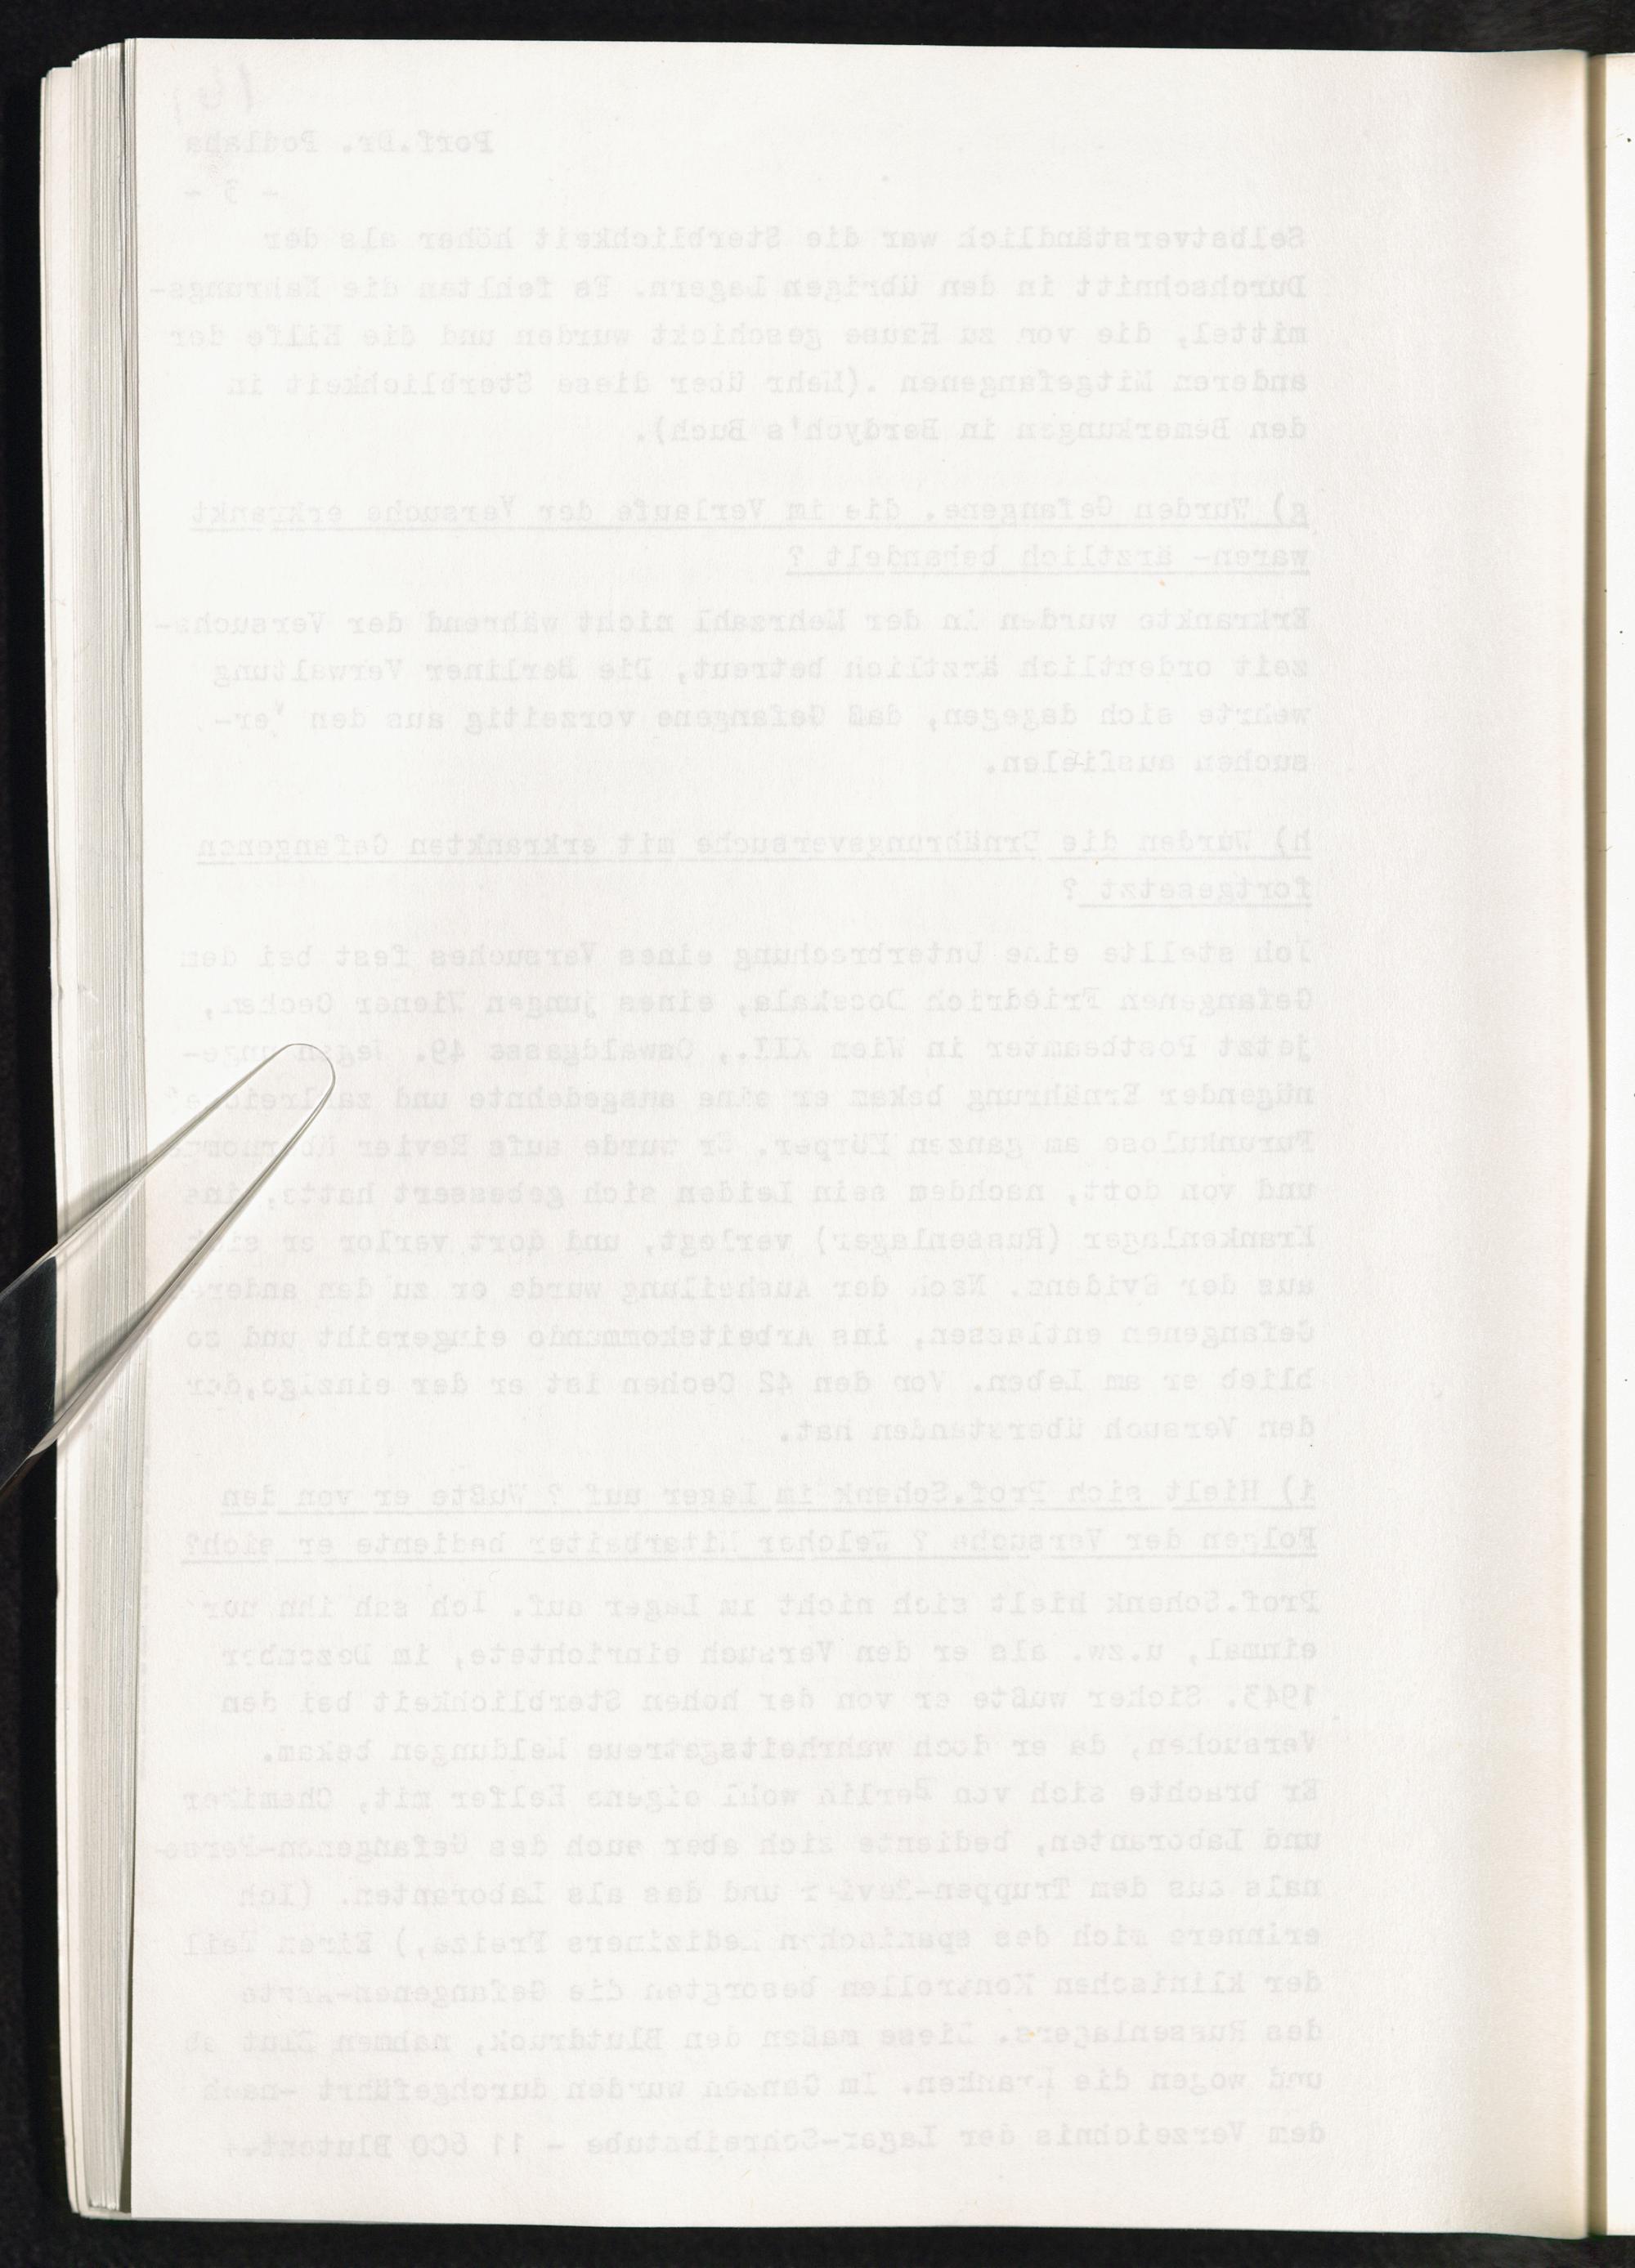 Porf.Dr. Podlaha
- 3 -
Selbstverständlich war die Sterblichkeit höher als der
Durchschnitt in den übrigen Lagern. Es fehlten die Nahrungs-
mittel, die von zu Hause geschickt wurden und die Hilfe der
anderen Mitgefangenen .(Mehr über diese Sterblichkeit in
den Bemerkungen in Berdych's Buch).
g) Wurden Gefangene, die im Verlaufe der Versuche erkrankt
waren- ärztlich behandelt ?
Erkrankte wurden in der Mehrzahl nicht während der Versuchs-
zeit ordentlich ärztlich betreut, Die Berliner Verwaltung
wehrte sich dagegen, daß Gefangene vorzeitig aus den Ver-
suchen ausfielen.
h) Wurden die Ernährungsversuche mit erkrankten Gefangenen
fortgesetzt ?
Ich stellte eine Unterbrechung eines Versuches fest bei dem
Gefangenen Friedrich Docekals, eines jungen Wiener Cechen,
jetzt Postbeamter in Wien XII., Oswaldgasse 49. Wegen unge-
nügender Ernährung bekam er eine ausgedehnte und
Furunkulose am ganzen Körper. Er wurde aufs Revier
und von dott, nachdem sein Leiden sich gebessert hatte, ins
Krankenlager (Russenlager) verlegt, und dort verlor er sich
aus der Evidenz. Nach der Ausheilung wurde er zu den anderen
Gefangenen entlassen, ins Arbeitskommando eingereiht und so
blieb er am Leben. Von den 42 Cechen ist er der einzige,der
den Versuch überstanden hat.
i) Hielt sich Prof.Schenk im Lager auf ? Wußte er von den
Folgen der Versuche ? Welcher Mitarbeiter bediente er sich?
Prof.Schenk hielt sich nicht im Lager auf. Ich sah ihn nur
einmal, u.zw. als er den Versuch einrichtete, im Dezember
1943. Sicher wußte er von der hohen Sterblichkeit bei den
Versuchen, da er doch wahrheitsgetreue Meldungen bekam.
Er brachte sich von Berlin wohl eigene Helfer mit, Chemiker
und Laboranten, bediente sich aber auch des Gefangenen-Perso-
nals aus dem Truppen-Revier und das als Laboranten. (Ich
erinnere mich des spanischen Mediziners Freiza,) Einen Teil
der klinischen Kontrollen besorgten die Gefangenen-Ärzte
des Russenlagers. Diese maßen den Blutdruck, nahmen Blut ab
und wogen die Kranken. Im Ganzen wurden durchgeführt -nach
dem Verzeichnis der Lager-Schreibstube - 11 600